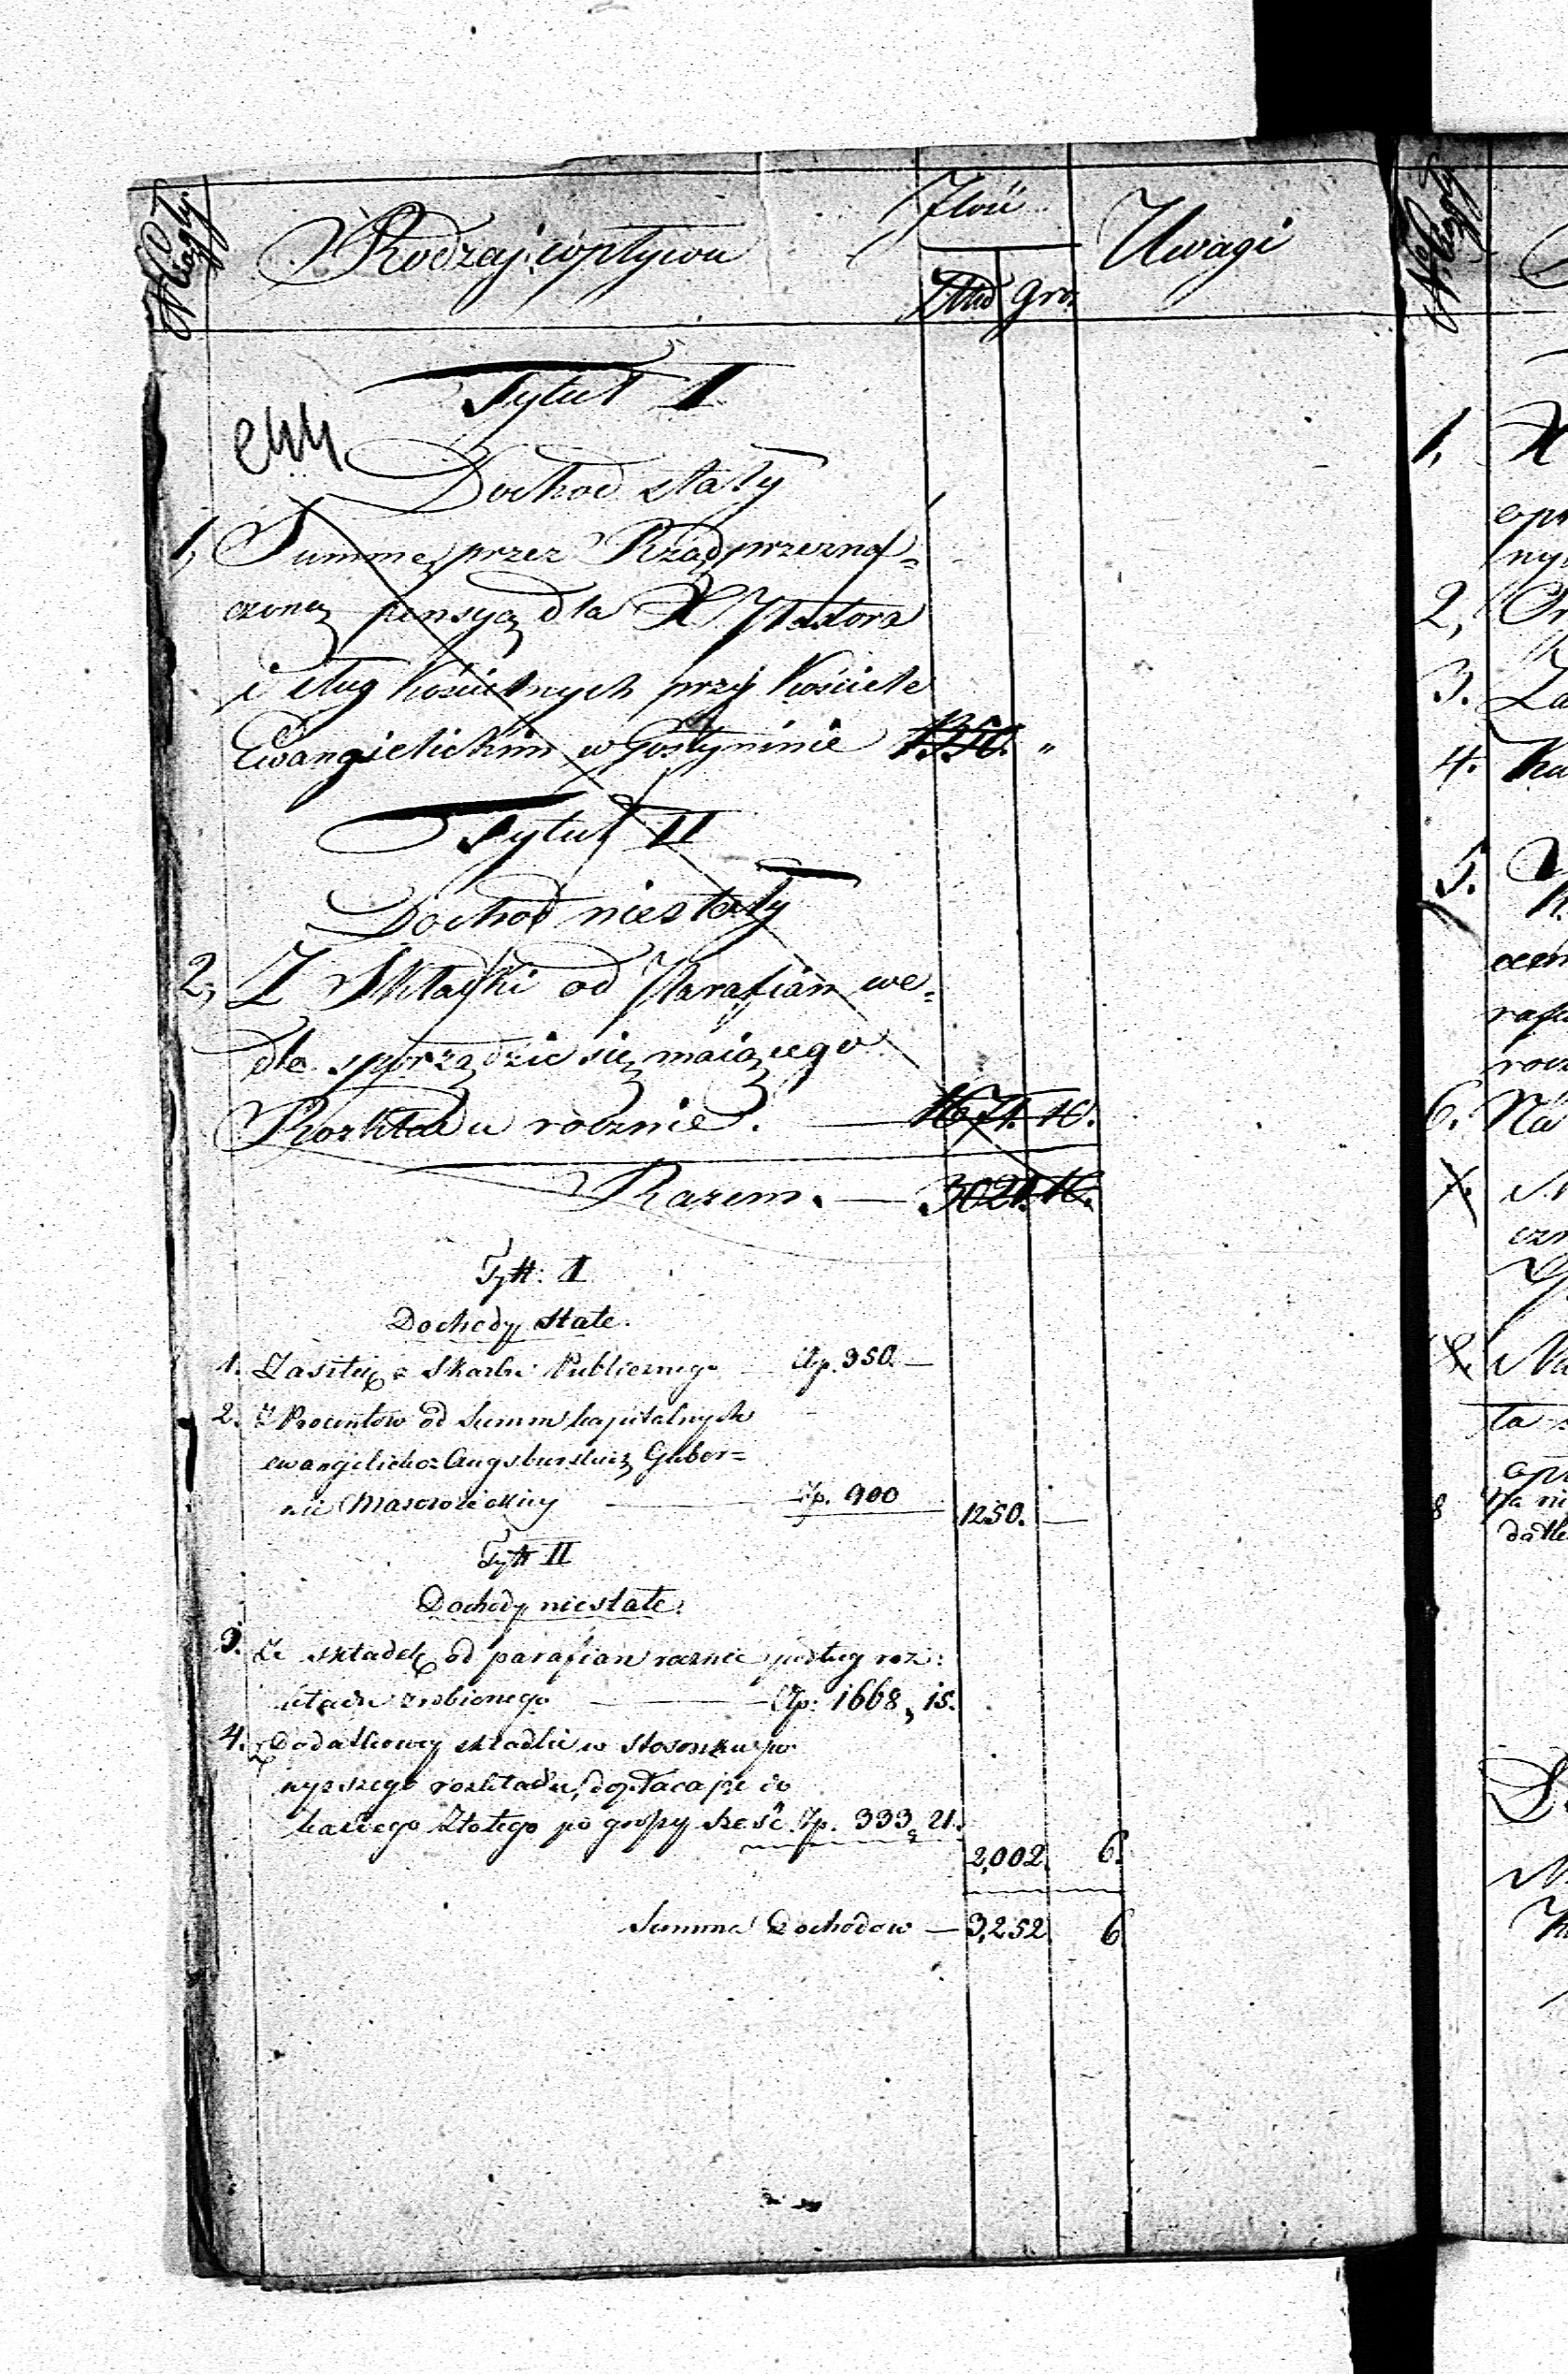 N Ciągły.
Rodzaj wpływu
Ilość
Złłd gro.
Uwagi
Tytuł I
Dochod stały
1, Summę przez Rząd przezna=
czoną pensyą dla X Pastora
i sług kościelnych przy kościele
Ewangielickim w Gostyninie 1350. "
Tytuł II
Dochod niestały
2, Z Składki od Parafian we=
dle sporządzić się maiącego
Rozkładu rocznie. — 1671. 10.
Razem. — 3021. 10.
Tytł: I
Dochody stałe.
1. Zasiłek z Skarbu Publicznego Złp. 350. —
2. Z Procentów od summ kapitalnych
ewangelicko=Augsburskich Guber=
nii Mazowieckiey — Złp. 900 1250. —
Tytł II
Dochody niestałe.
3. Ze składek od parafian rocznie podług roz=
kładu zrobionego — Złp: 1668, 15.
4. Dodatkowey składki w stosunku po
wyższego rozkładu, dopłacając do
każdego Złotego po groszy sześć Złp. 333, 21.
2,002. 6.
Summa Dochodow — 3,252 6
N. Ciągły
1, X
2,
3. Za
4.
5.
6. Na
8